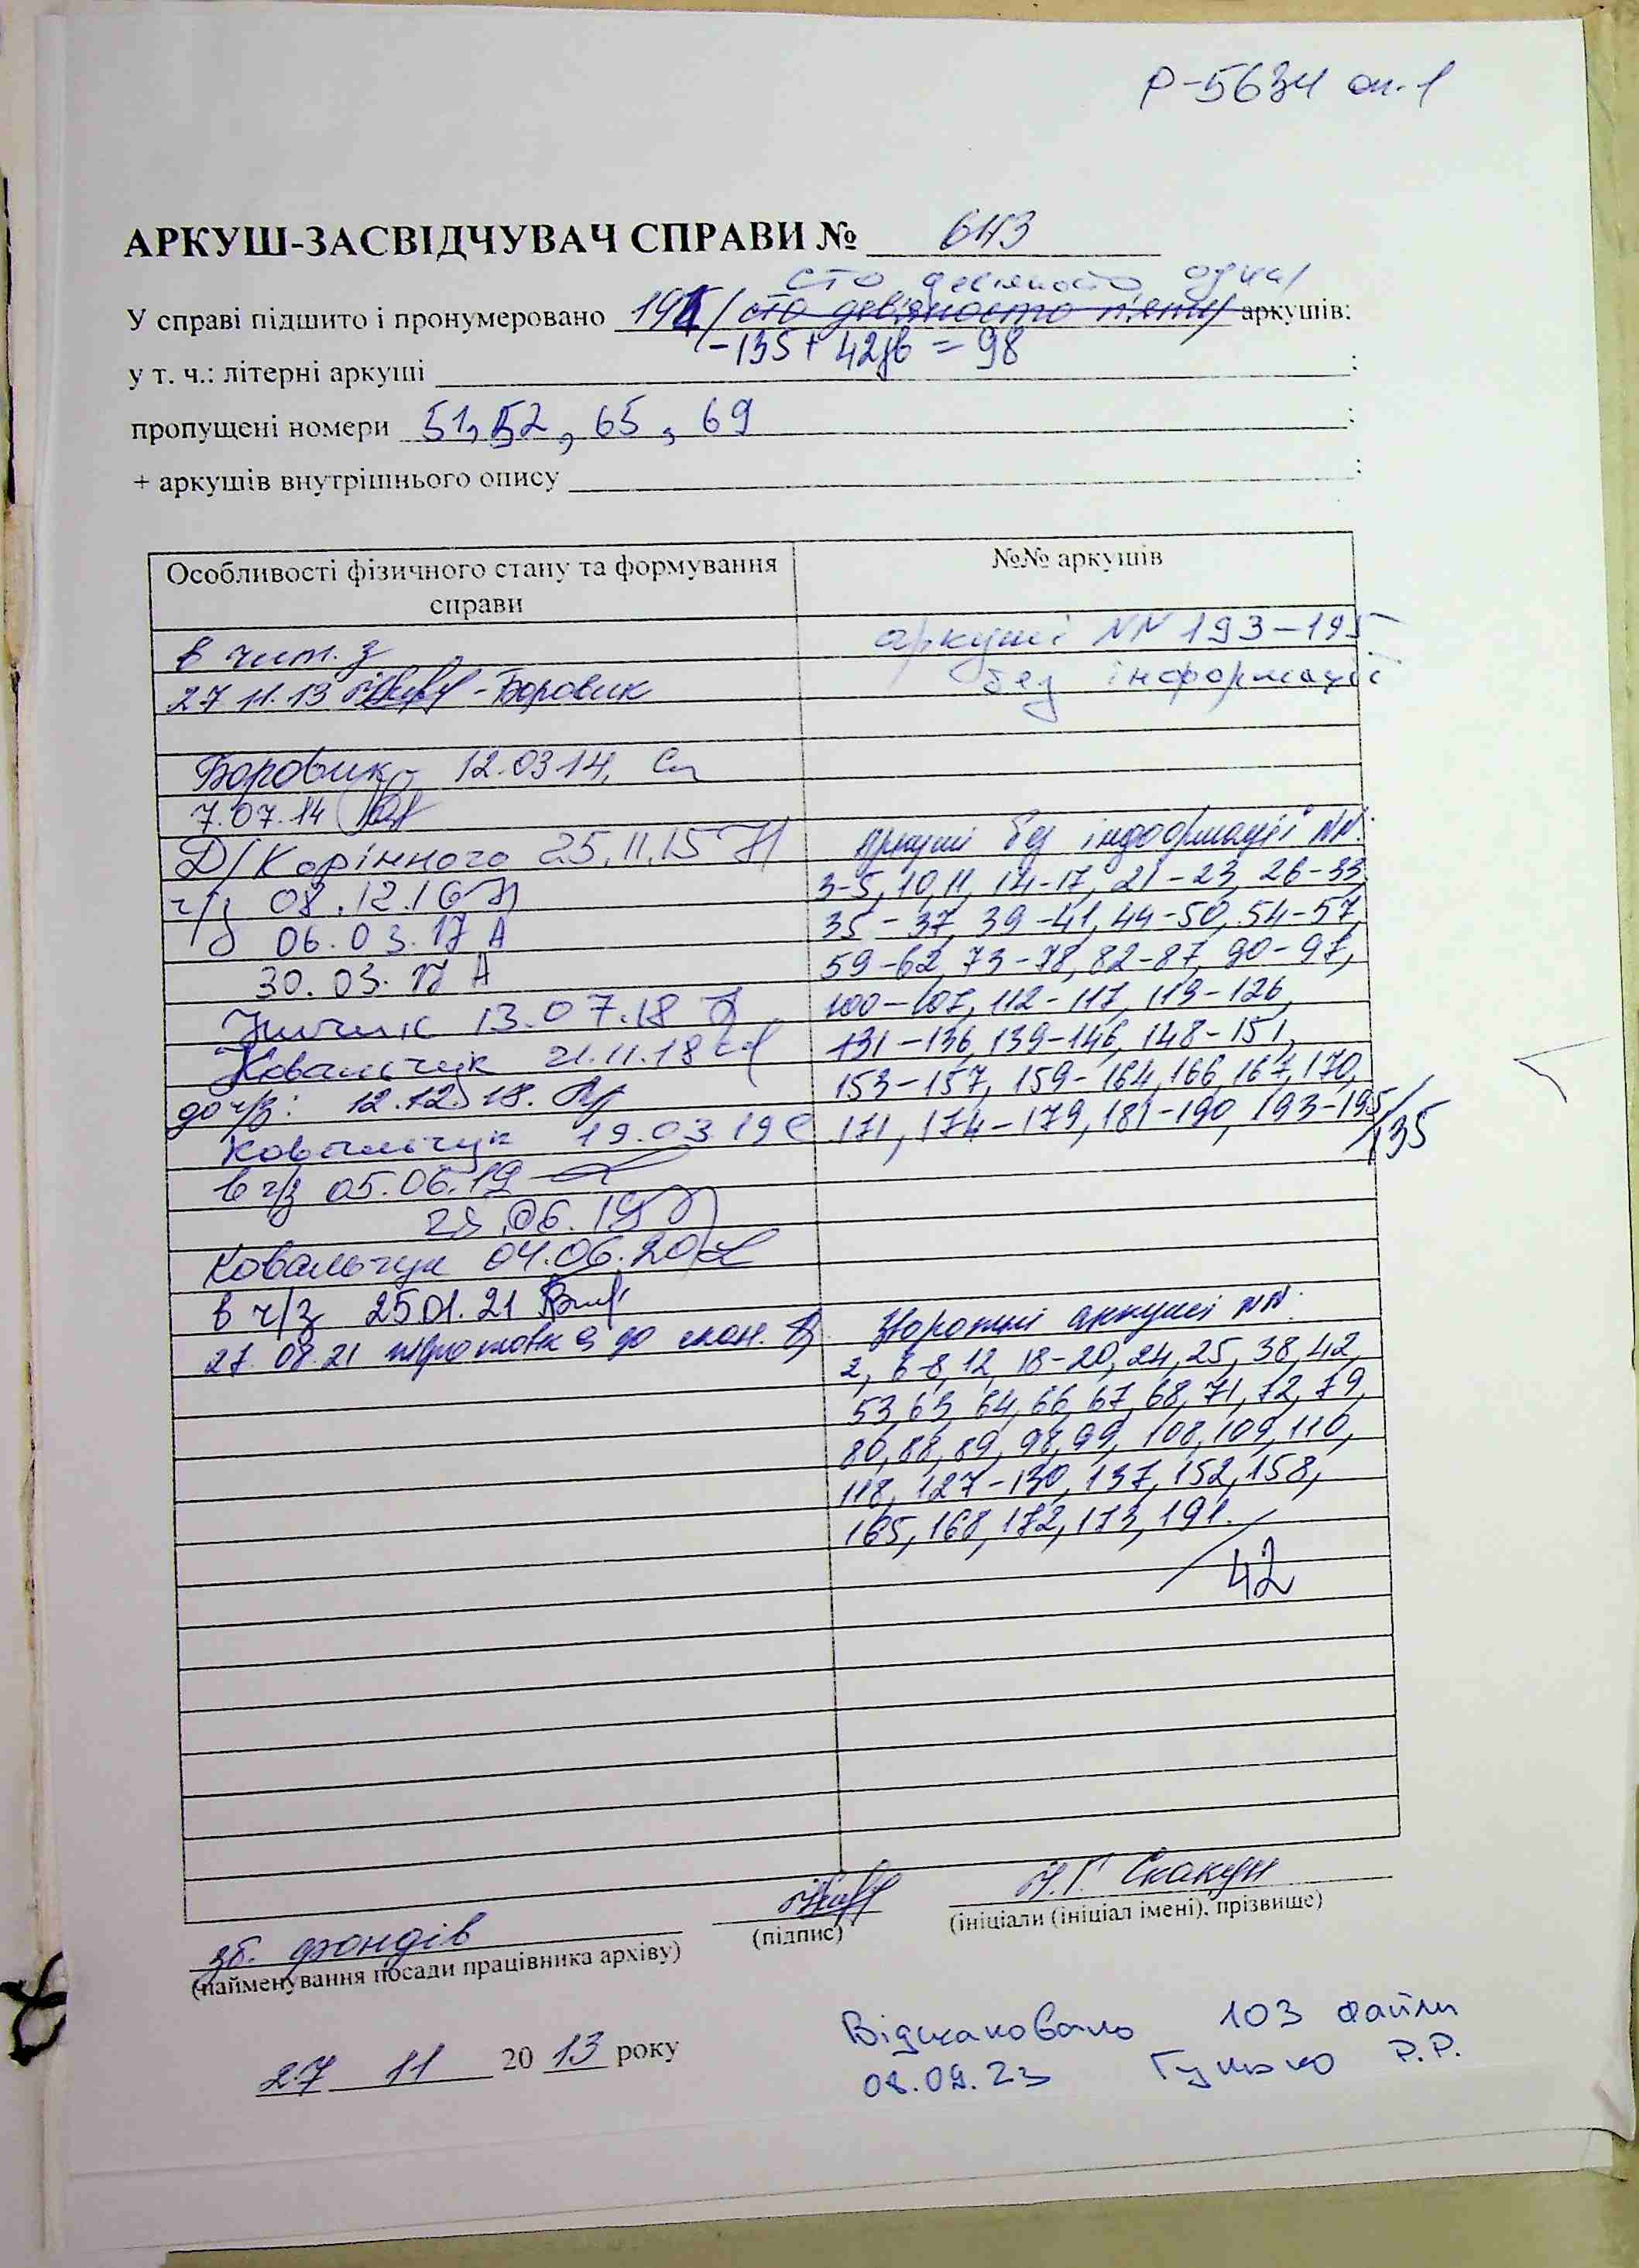 Р-5634 оп. 1
АРКУШ-ЗАСВІДЧУВАЧ СПРАВИ № 643
сто дев'яносто один/
У справі підшито і пронумеровано 191 / сто дев'яносто п'ять/ аркушів:
-135 + 42зв = 98
у т. ч.: літерні аркуші ;
пропущені номери 51, 52, 65, 69 ;
+ аркушів внутрішнього опису ;
Особливості фізичного стану та формування справи
№№ аркушів
в чит. з
27 11.13 - Боровик
аркуші NN 193-195
без інформації
Боровик 12.03.14,
7.07.14
Д/Корінного 25.11.15
ч/з 08.12.16
06.03.17 А
30.03.17 А
13.07.18
Ковальчук 21.11.18
до ч/з: 12.12.18.
Ковальчук 19.03.19
в ч/з 05.06.19
25.06.19
Ковальчук 04.06.20
в ч/з 25.01.21
27.08.21 підготовка до скан.
Аркуші без інформації NN:
3-5, 10, 11, 14-17, 21-23, 26-33,
35-37, 39-41, 44-50, 54-57,
59-62, 73-78, 82-87, 90-97,
100-107, 112-117, 119-126,
131-136, 139-146, 148-151,
153-157, 159-164, 166, 167, 170,
171, 174-179, 181-190, 193-195/
135
Зворотні аркуші NN:
2, 6-8, 12, 18-20, 24, 25, 38, 42,
53, 63, 64, 66, 67, 68, 71, 72, 79,
80, 88, 89, 98, 99, 108, 109, 110,
118, 127-130, 137, 152, 158,
165, 168, 172, 173, 191.
42
зб. фондів
Н.Г. Скакун
(найменування посади працівника архіву)
(підпис)
(ініціали (ініціал імені), прізвище)
27 11 20 13 року
Відскановано 103 файли
08.09.23 Гунько Р.Р.